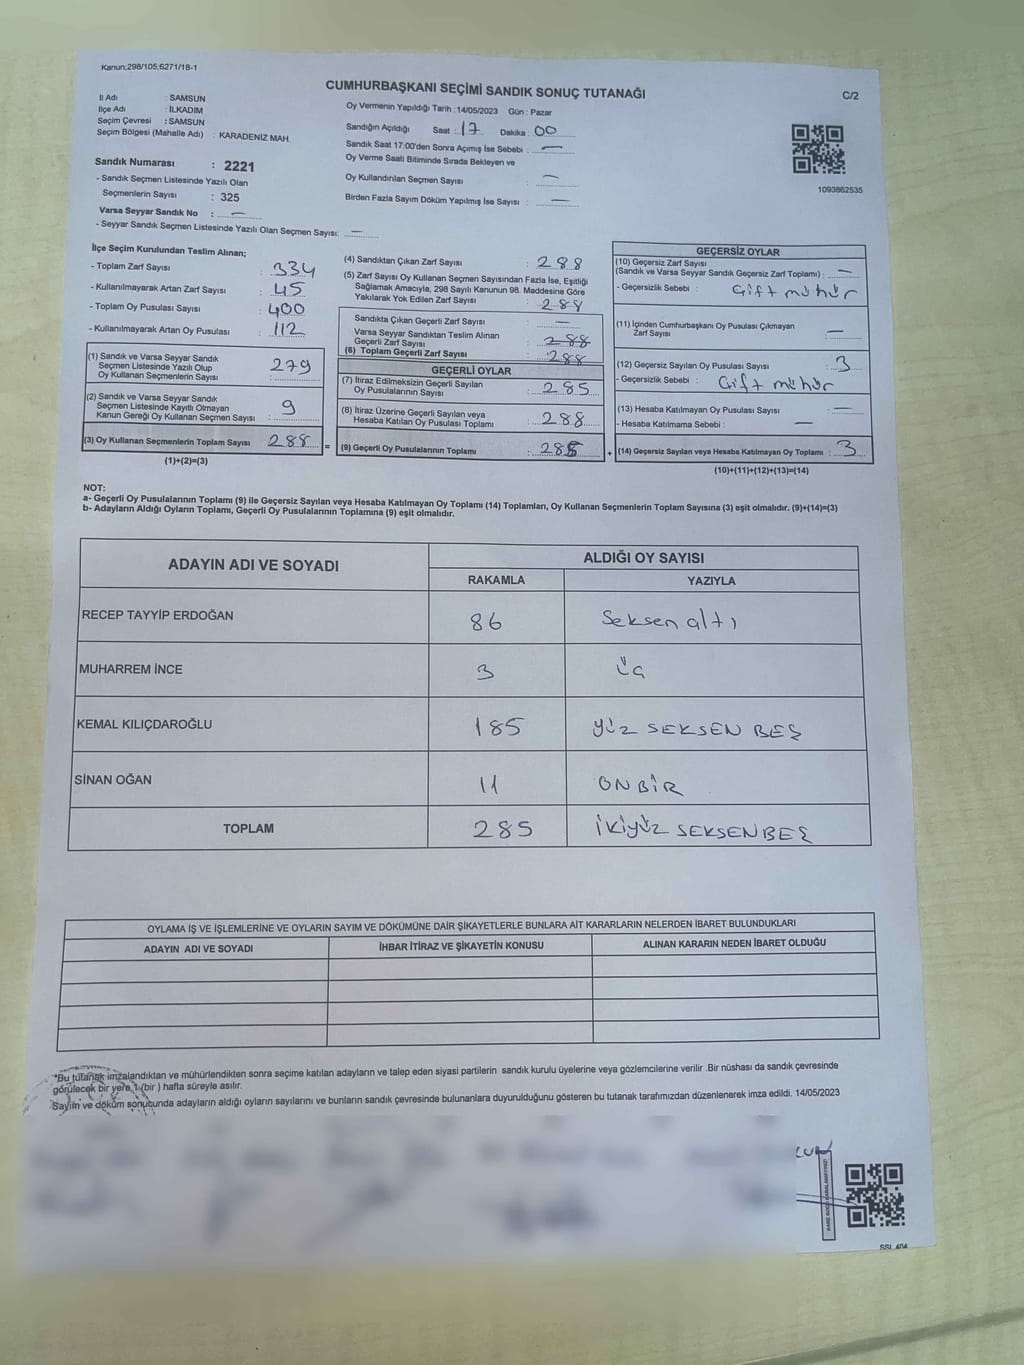 Kanun:298/105,6271/18-1
CUMHURBAŞKANI SEÇİMİ SANDIK SONUÇ TUTANAĞI
C/2
İl Adı : SAMSUN
İlçe Adı : İLKADIM
Seçim Çevresi : SAMSUN
Seçim Bölgesi (Mahalle Adı) : KARADENİZ MAH.
Sandık Numarası : 2221
- Sandık Seçmen Listesinde Yazılı Olan
Seçmenlerin Sayısı : 325
Varsa Seyyar Sandık No : —
- Seyyar Sandık Seçmen Listesinde Yazılı Olan Seçmen Sayısı: —
Oy Vermenin Yapıldığı Tarih :14/05/2023 Gün : Pazar
Sandığın Açıldığı Saat : 17 Dakika : 00
Sandık Saat 17:00'den Sonra Açımış İse Sebebi : —
Oy Verme Saati Bitiminde Sırada Bekleyen ve
Oy Kullandırılan Seçmen Sayısı : —
Birden Fazla Sayım Döküm Yapılmış İse Sayısı : —
1093862535
İlçe Seçim Kurulundan Teslim Alınan;
- Toplam Zarf Sayısı : 334
- Kullanılmayarak Artan Zarf Sayısı : 45
- Toplam Oy Pusulası Sayısı : 400
- Kullanılmayarak Artan Oy Pusulası : 112
(1) Sandık ve Varsa Seyyar Sandık
Seçmen Listesinde Yazılı Olup
Oy Kullanan Seçmenlerin Sayısı : 279
(2) Sandık ve Varsa Seyyar Sandık
Seçmen Listesinde Kayıtlı Olmayan
Kanun Gereği Oy Kullanan Seçmen Sayısı : 9
(3) Oy Kullanan Seçmenlerin Toplam Sayısı : 288 =
(1)+(2)=(3)
(4) Sandıktan Çıkan Zarf Sayısı : 288
(5) Zarf Sayısı Oy Kullanan Seçmen Sayısından Fazla İse, Eşitliği
Sağlamak Amacıyla, 298 Sayılı Kanunun 98. Maddesine Göre
Yakılarak Yok Edilen Zarf Sayısı : 288
Sandıkta Çıkan Geçerli Zarf Sayısı : —
Varsa Seyyar Sandıktan Teslim Alınan
Geçerli Zarf Sayısı : 288
(6) Toplam Geçerli Zarf Sayısı : 288
GEÇERLİ OYLAR
(7) İtiraz Edilmeksizin Geçerli Sayılan
Oy Pusulalarının Sayısı : 285
(8) İtiraz Üzerine Geçerli Sayılan veya
Hesaba Katılan Oy Pusulası Toplamı : 288
(9) Geçerli Oy Pusulalarının Toplamı : 285 +
GEÇERSİZ OYLAR
(10) Geçersiz Zarf Sayısı
(Sandık ve Varsa Seyyar Sandık Geçersiz Zarf Toplamı) : —
- Geçersizlik Sebebi : Çift mühür
(11) İçinden Cumhurbaşkanı Oy Pusulası Çıkmayan
Zarf Sayısı : —
(12) Geçersiz Sayılan Oy Pusulası Sayısı : 3
- Geçersizlik Sebebi : Çift mühür
(13) Hesaba Katılmayan Oy Pusulası Sayısı : —
- Hesaba Katılmama Sebebi : —
(14) Geçersiz Sayılan veya Hesaba Katılmayan Oy Toplamı : 3
(10)+(11)+(12)+(13)=(14)
NOT:
a- Geçerli Oy Pusulalarının Toplamı (9) ile Geçersiz Sayılan veya Hesaba Katılmayan Oy Toplamı (14) Toplamları, Oy Kullanan Seçmenlerin Toplam Sayısına (3) eşit olmalıdır. (9)+(14)=(3)
b- Adayların Aldığı Oyların Toplamı, Geçerli Oy Pusulalarının Toplamına (9) eşit olmalıdır.
ADAYIN ADI VE SOYADI ALDIĞI OY SAYISI
RAKAMLA YAZIYLA
RECEP TAYYİP ERDOĞAN 86 Seksen altı
MUHARREM İNCE 3 üç
KEMAL KILIÇDAROĞLU 185 YÜZ SEKSEN BEŞ
SİNAN OĞAN 11 ONBİR
TOPLAM 285 İKİYÜZ SEKSENBEŞ
OYLAMA İŞ VE İŞLEMLERİNE VE OYLARIN SAYIM VE DÖKÜMÜNE DAİR ŞİKAYETLERLE BUNLARA AİT KARARLARIN NELERDEN İBARET BULUNDUKLARI
ADAYIN ADI VE SOYADI İHBAR İTİRAZ VE ŞİKAYETİN KONUSU ALINAN KARARIN NEDEN İBARET OLDUĞU
*Bu tutanak imzalandıktan ve mühürlendikten sonra seçime katılan adayların ve talep eden siyasi partilerin sandık kurulu üyelerine veya gözlemcilerine verilir .Bir nüshası da sandık çevresinde
görülecek bir yere 1 (bir ) hafta süreyle asılır.
Sayım ve döküm sonucunda adayların aldığı oyların sayılarını ve bunların sandık çevresinde bulunanlara duyurulduğunu gösteren bu tutanak tarafımızdan düzenlenerek imza edildi. 14/05/2023